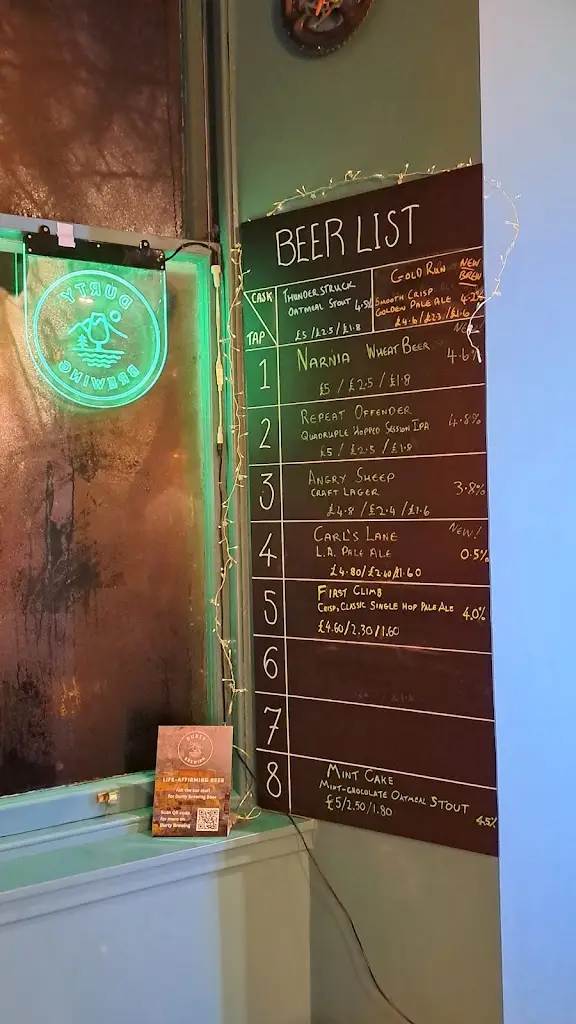 BEER LIST
CASK
TAP
THUNDERSTRUCK
OATMEAL STOUT 4.5%
£5/£2.5/£1.8
GOLD RUN NEW BREW
SMOOTH CRISP
GOLDEN PALE ALE 4.2%
£4.6/£2.3/£1.6
1 NARNIA WHEAT BEER 4.6%
NEW
£5 / £2.5 / £1.8
2 REPEAT OFFENDER 4.8%
QUADRUPLE HOPPED SESSION IPA
£5 / £2.5 / £1.8
3 ANGRY SHEEP 3.8%
CRAFT LAGER
£4.8 / £2.4 / £1.6
4 CARL'S LANE NEW!
L.A. PALE ALE 0.5%
£4.80/£2.40/£1.60
5 FIRST CLIMB
CRISP, CLASSIC SINGLE HOP PALE ALE 4.0%
£4.60/2.30/1.60
6
7
8 MINT CAKE
MINT-CHOCOLATE OATMEAL STOUT 4.5%
£5/2.50/1.80
DURTY
BREWING
DURTY
BREWING
LIFE-AFFIRMING BEER
Ask the bar staff
for Durty Brewing Beer
Scan QR code
for more on
Durty Brewing